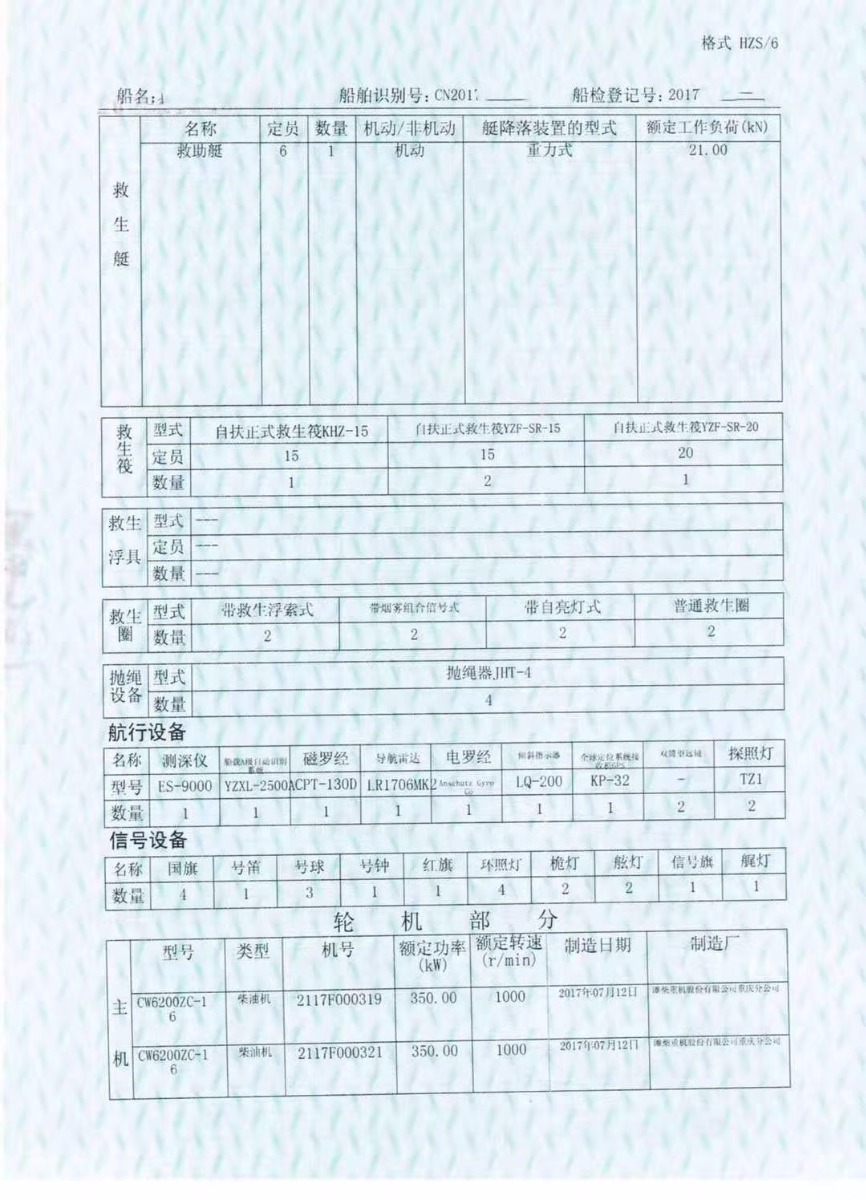 格式 HZS/6
船名: 船舶识别号: CN201 船检登记号: 2017
救生艇 名称 定员 数量 机动/非机动 艇降落装置的型式 额定工作负荷(kN)
救助艇 6 1 机动 重力式 21.00
救生筏 型式 自扶正式救生筏KHZ-15 自扶正式救生筏YZF-SR-15 自扶正式救生筏YZF-SR-20
定员 15 15 20
数量 1 2 1
救生浮具 型式 ---
定员 ---
数量 ---
救生圈 型式 带救生浮索式 带烟雾组合信号式 带自亮灯式 普通救生圈
数量 2 2 2 2
抛绳设备 型式 抛绳器JHT-4
数量 4
航行设备
名称 测深仪 船载A级自动识别系统 磁罗经 导航雷达 电罗经 倾斜指示器 全球定位系统接收机GPS 双筒望远镜 探照灯
型号 ES-9000 YZXL-2500A CPT-130D LR1706MK2 Anschutz Gyro Co LQ-200 KP-32 - TZ1
数量 1 1 1 1 1 1 1 2 2
信号设备
名称 国旗 号笛 号球 号钟 红旗 环照灯 桅灯 舷灯 信号旗 艉灯
数量 4 1 3 1 1 4 2 2 1 1
轮机部分
主机 型号 类型 机号 额定功率(kW) 额定转速(r/min) 制造日期 制造厂
CW6200ZC-16 柴油机 2117F000319 350.00 1000 2017年07月12日 潍柴重机股份有限公司重庆分公司
CW6200ZC-16 柴油机 2117F000321 350.00 1000 2017年07月12日 潍柴重机股份有限公司重庆分公司